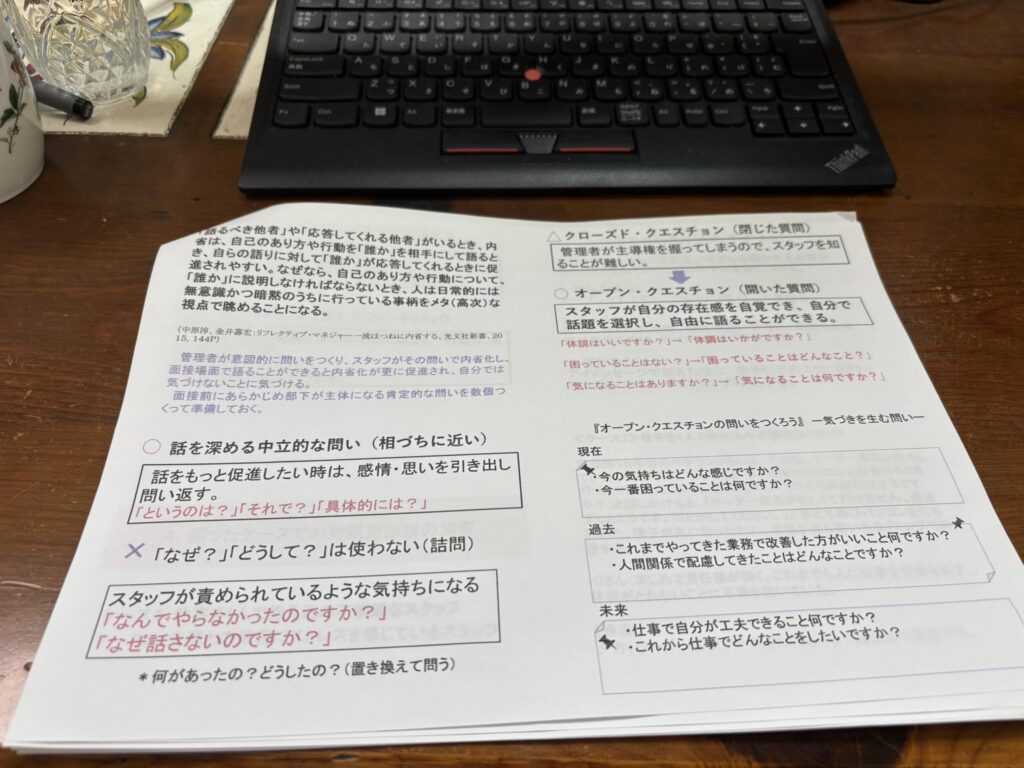 語るべき他者」や「応答してくれる他者」がいるとき、内
省は、自己のあり方や行動を「誰か」を相手にして語ると
き、自らの語りに対して「誰か」が応答してくれるときに促
進されやすい。なぜなら、自己のあり方や行動について、
「誰か」に説明しなければならないとき、人は日常的には
無意識かつ暗黙のうちに行っている事柄をメタ(高次)な
視点で眺めることになる。
(中原淳、金井壽宏:リフレクティブ・マネジャー―一流はつねに内省する、光文社新書、20
15, 144P)
管理者が意図的に問いをつくり、スタッフがその問いで内省化し、
面接場面で語ることができると内省化が更に促進され、自分では
気づけないことに気づける。
面接前にあらかじめ部下が主体になる肯定的な問いを数個つ
くって準備しておく。
○ 話を深める中立的な問い(相づちに近い)
話をもっと促進したい時は、感情・思いを引き出し
問い返す。
「というのは?」「それで?」「具体的には?」
× 「なぜ?」「どうして?」は使わない(詰問)
スタッフが責められているような気持ちになる
「なんでやらなかったのですか?」
「なぜ話さないのですか?」
*何があったの?どうしたの?(置き換えて問う)
△ クローズド・クエスチョン(閉じた質問)
管理者が主導権を握ってしまうので、スタッフを知
ることが難しい。
○ オープン・クエスチョン(開いた質問)
スタッフが自分の存在感を自覚でき、自分で
話題を選択し、自由に語ることができる。
「体調はいいですか?」→「体調はいかがですか?」
「困っていることはない?」→「困っていることはどんなこと?」
「気になることはありますか?」→「気になることは何ですか?」
『オープン・クエスチョンの問いをつくろう』 ―気づきを生む問い―
現在
・今の気持ちはどんな感じですか?
・今一番困っていることは何ですか?
過去
・これまでやってきた業務で改善した方がいいこと何ですか?
・人間関係で配慮してきたことはどんなことですか?
未来
・仕事で自分が工夫できること何ですか?
・これから仕事でどんなことをしたいですか?
ThinkPad